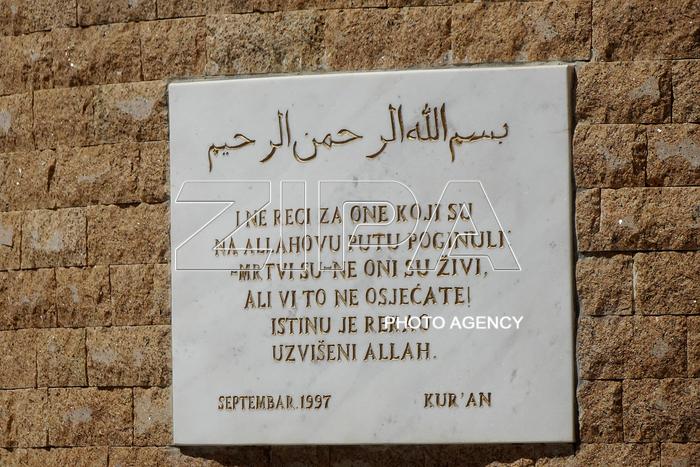 بسم الله الرحمن الرحيم
I NE RECI ZA ONE KOJI SU
NA ALLAHOVU PUTU POGINULI
-MRTVI SU-NE ONI SU ŽIVI,
ALI VI TO NE OSJEĆATE!
ISTINU JE REKAO
UZVIŠENI ALLAH.
SEPTEMBAR.1997 KUR'AN
ZIPA
PHOTO AGENCY